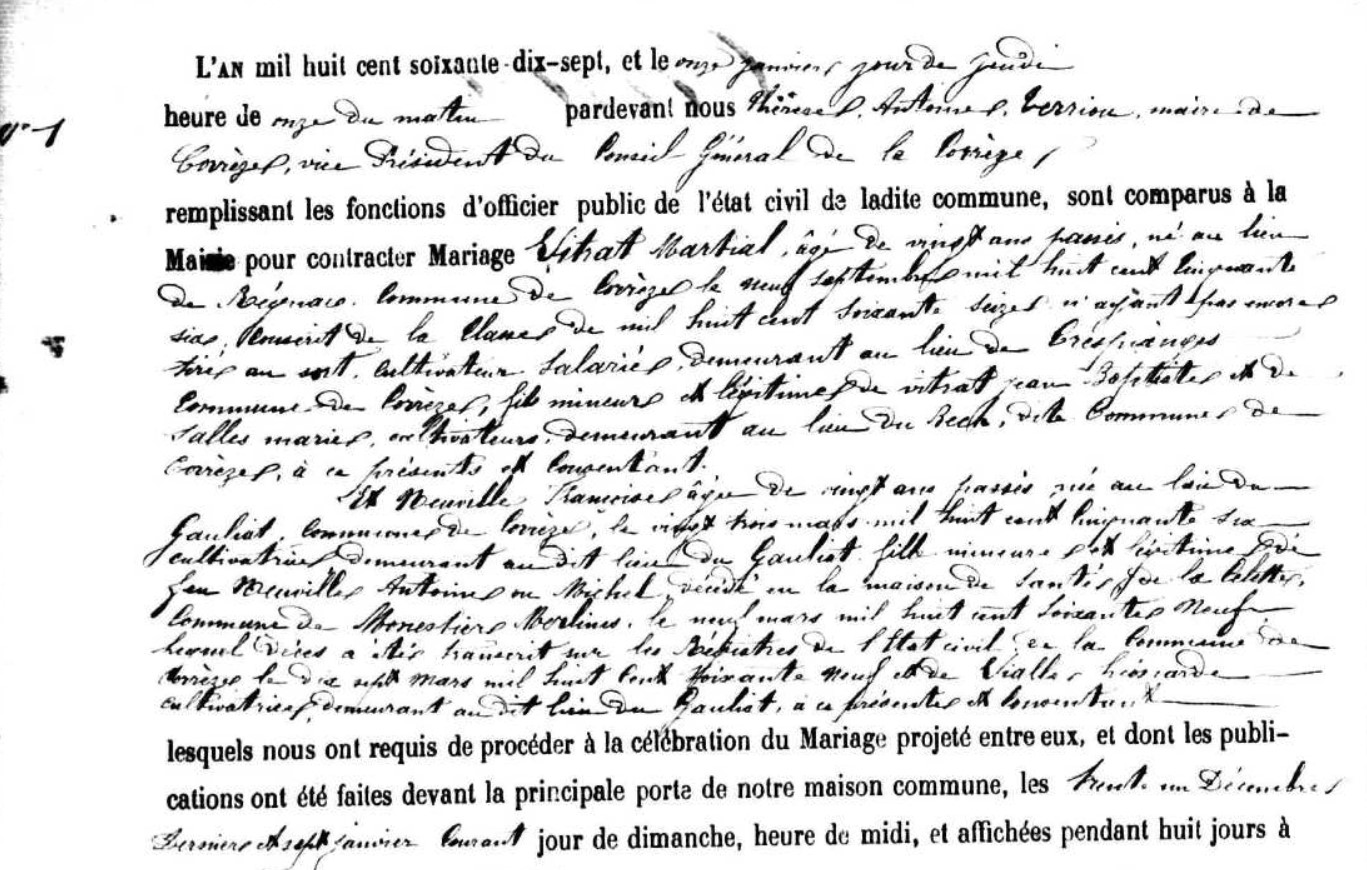 n° 1
L'AN mil huit cent soixante-dix-sept, et le onze janvier, jour de jeudi
heure de onze du matin pardevant nous Antoine, maire de
Corrèze, vice Président du Conseil Général de la Corrèze,
remplissant les fonctions d'officier public de l'état civil de ladite commune, sont comparus à la
Mairie pour contracter Mariage Vitrat Martial, âgé de vingt ans passés, né au lieu
de Régnac, Commune de Corrèze le neuf septembre mil huit cent cinquante
six, conscrit de la classe de mil huit cent soixante seize n'ayant pas encore
tiré au sort, cultivateur salarié, demeurant au lieu de
Commune de Corrèze, fils mineur et légitime de vitrat jean Baptiste et de
Salles marie, cultivateurs, demeurant au lieu du Bech, dite Commune de
Corrèze, à ce présents et consentant.
Et Neuville Françoise âgée de vingt ans passés née au lieu du
Gauliat, commune de Corrèze, le vingt trois mars mil huit cent cinquante six
cultivatrice, demeurant au dit lieu du Gauliat fille mineure et légitime de
feu Neuville Antoine ou Michel, décédé en la maison de santé de la Celette,
Commune de Monestier Merlines, le neuf mars mil huit cent soixante neuf
lequel décès a été transcrit sur les Régistres de l'Etat civil de la Commune de
Corrèze le dix sept mars mil huit cent soixante neuf et de Vialle Léonarde
cultivatrice, demeurant au dit lieu du Gauliat, à ce présente et consentant
lesquels nous ont requis de procéder à la célébration du Mariage projeté entre eux, et dont les publi-
cations ont été faites devant la principale porte de notre maison commune, les trente un Décembre
Dernier et sept janvier Courant jour de dimanche, heure de midi, et affichées pendant huit jours à